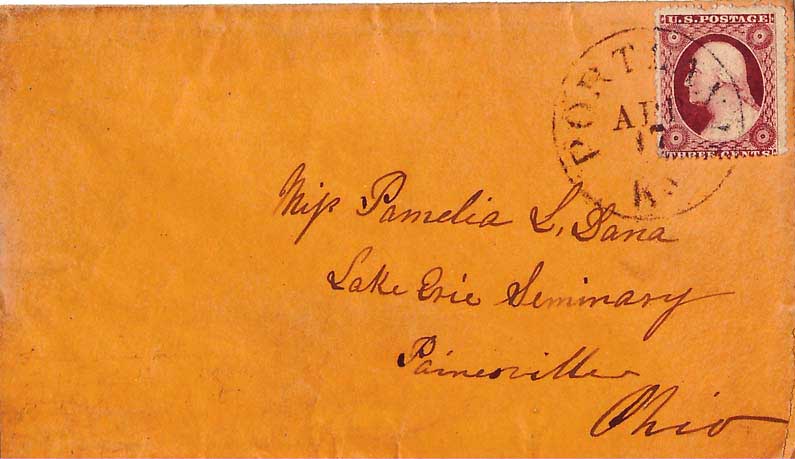 U.S. POSTAGE
THREE CENTS
PORTLA
APR
17
KY
Miss Pamelia L. Dana
Lake Erie Seminary
Painesville
Ohio